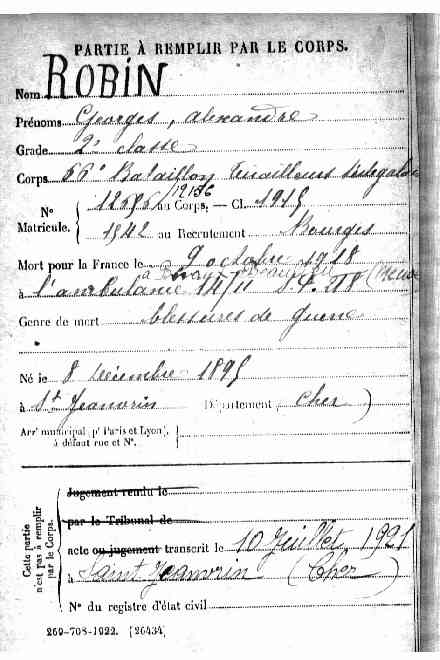 PARTIE À REMPLIR PAR LE CORPS.
Nom ROBIN
Prénoms Georges, Alexandre
Grade 2e classe
Corps 66e Bataillon Tirailleurs Sénégalais
12136
N° Matricule. { 12596 au Corps. — Cl. 1915
1842 au Recrutement Bourges
Mort pour la France le 9 octobre 1918
à
à l'ambulance 14/11 S.P. 218 (Meuse
Genre de mort blessures de guerre
Né le 8 décembre 1895
à St Jeanvrin Département Cher )
Arrt municipal (pr Paris et Lyon), à défaut rue et N°.
Cette partie n'est pas à remplir par le Corps.
Jugement rendu le
par le Tribunal de
acte ou jugement transcrit le 10 Juillet 1921
à Saint Jeanvrin (Cher)
N° du registre d'état civil
269-708-1922. [26434]